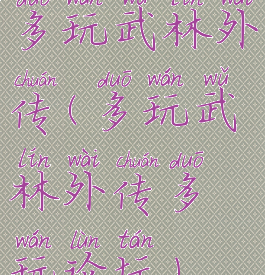 duō wán wǔ lín wài
多玩武林外
chuán duō wán wǔ
传(多玩武
lín wài chuán duō
林外传多
wán lùn tán
玩论坛)